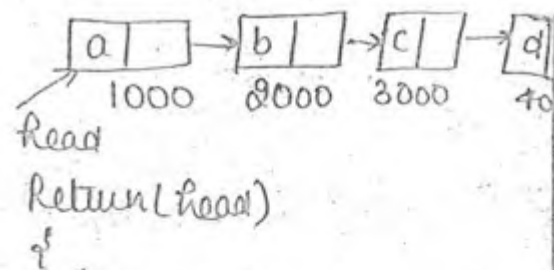 a b c d
1000 2000 3000 40
head
Return(head)
{